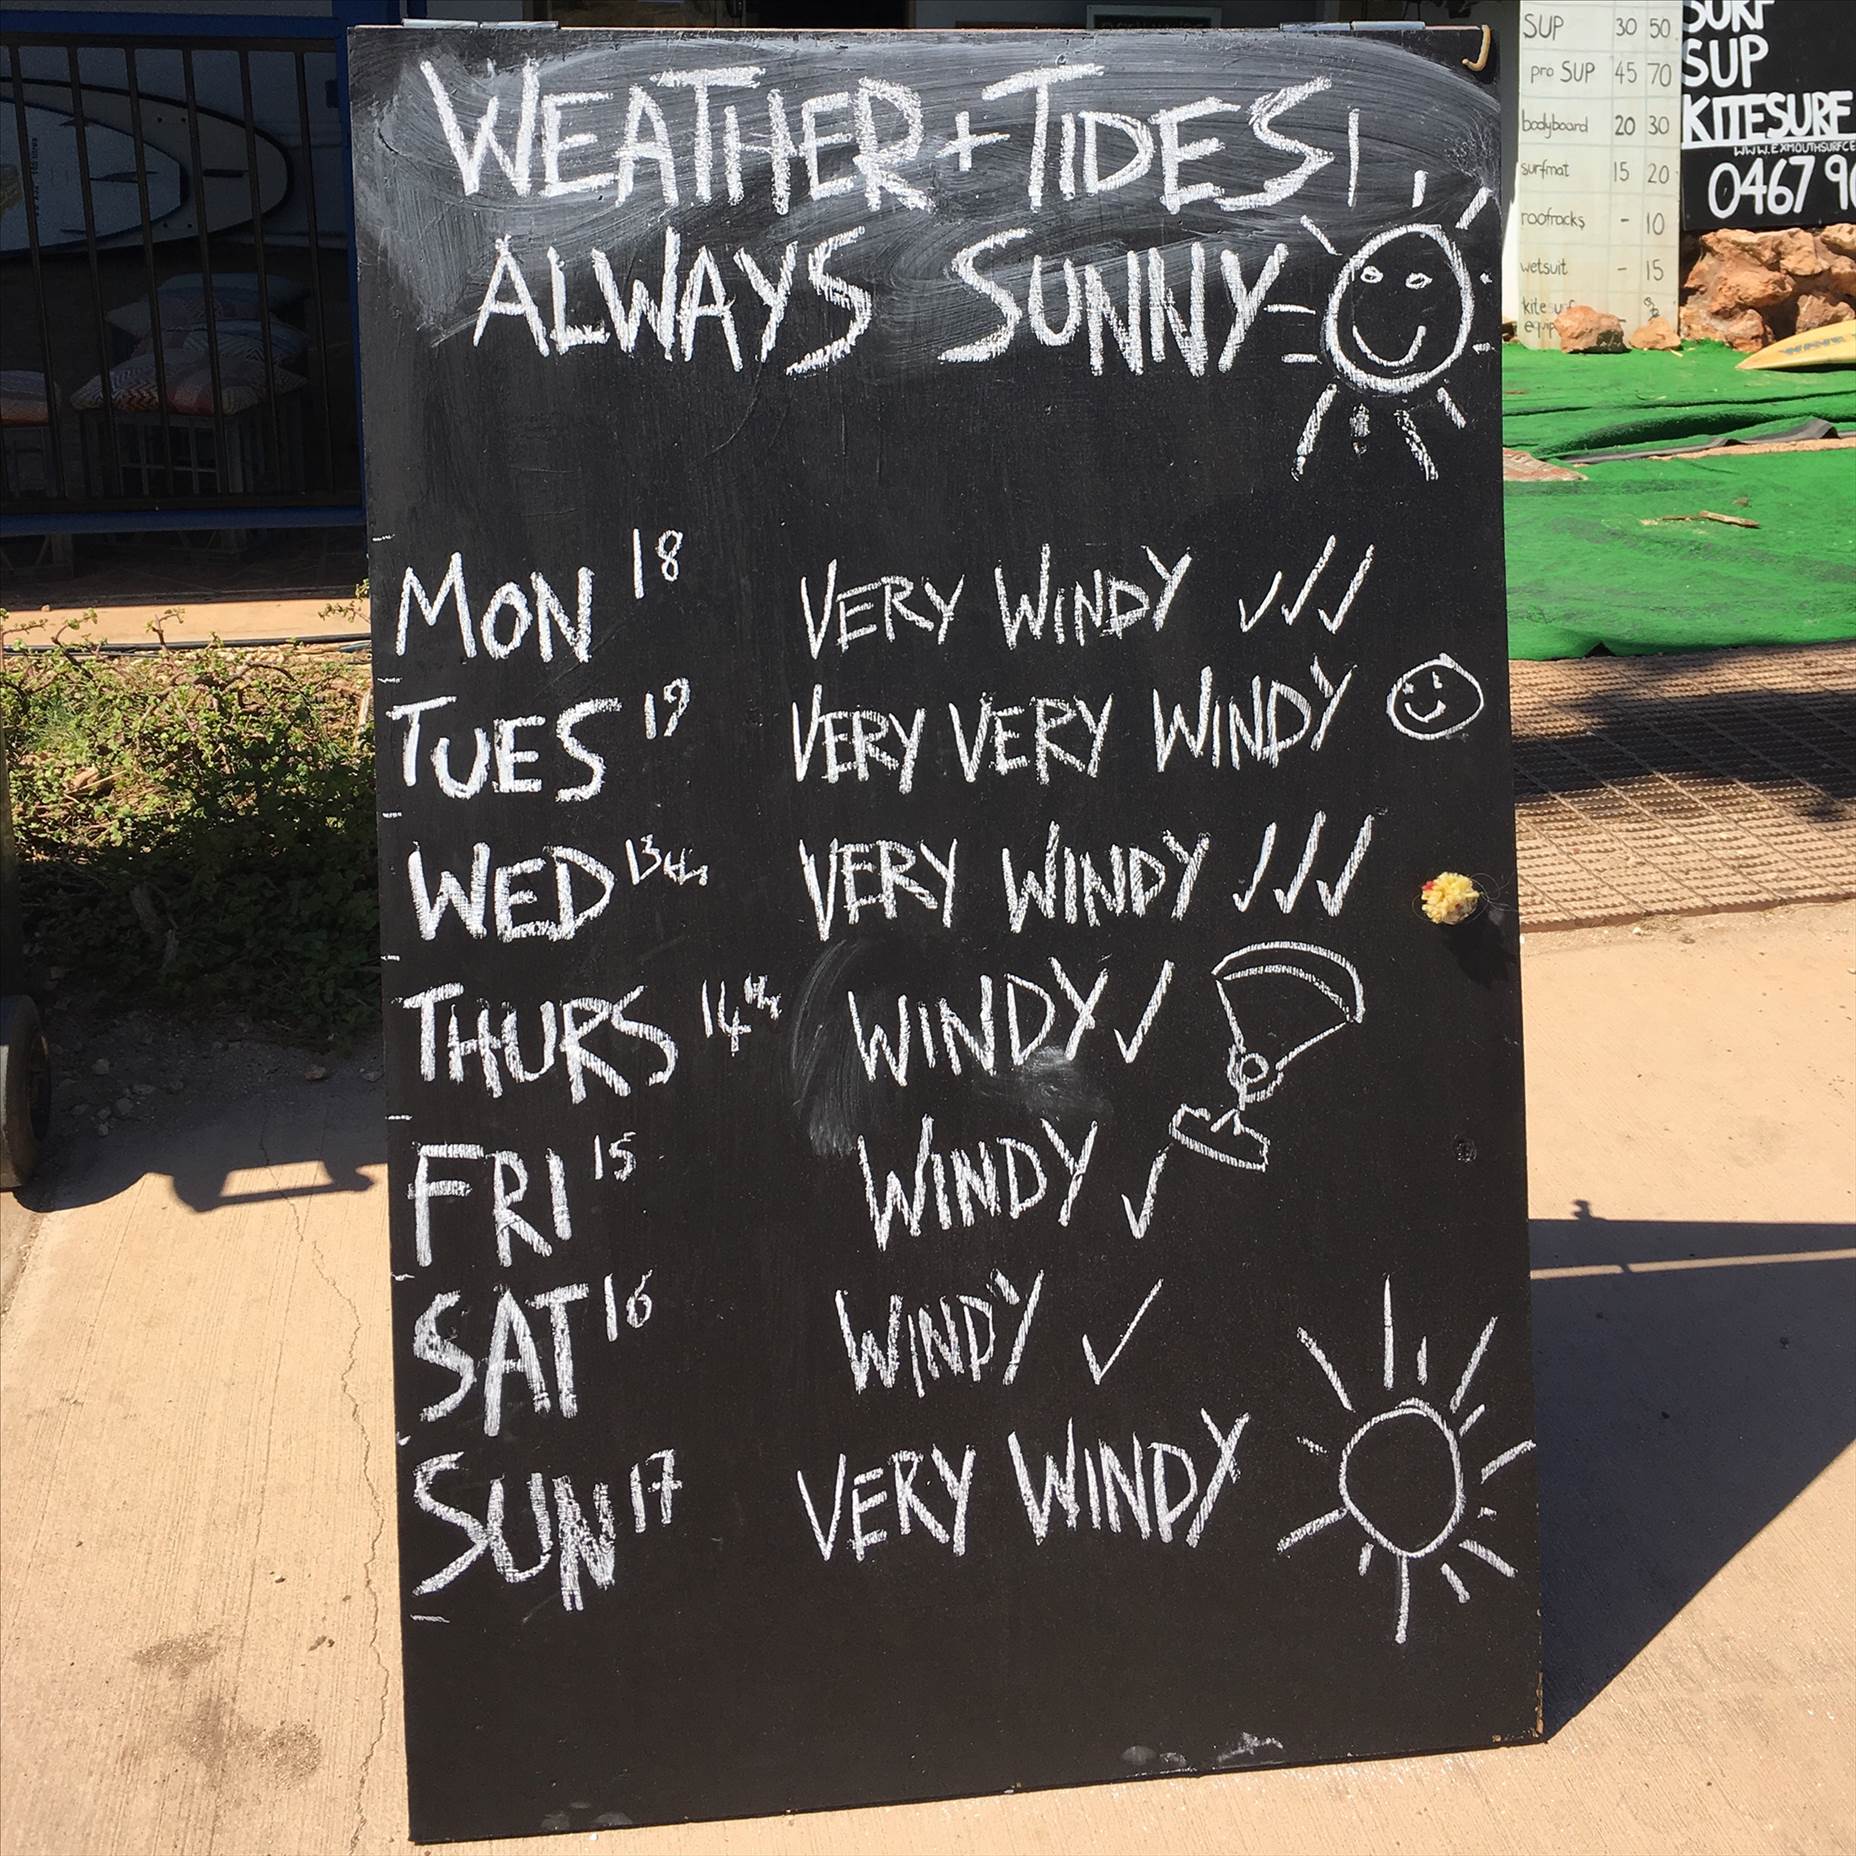 WEATHER + TIDES
ALWAYS SUNNY
MON 18 VERY WINDY ✓✓✓
TUES 19 VERY VERY WINDY
WED 13th VERY WINDY ✓✓✓
THURS 14th WINDY ✓
FRI 15 WINDY ✓
SAT 16 WINDY ✓
SUN 17 VERY WINDY
SUP 30 50
pro SUP 45 70
bodyboard 20 30
surfmat 15 20
roofracks - 10
wetsuit - 15
SURF
SUP
KITESURF
WWW.EXMOUTHSURFCE
0467 90